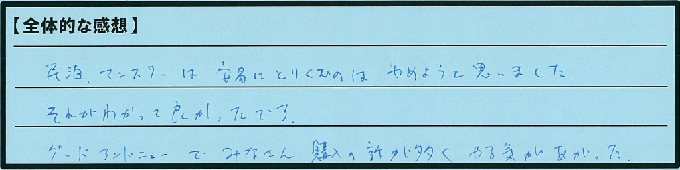 【全体的な感想】
民泊、マンスリーは 安易にとりくむのは やめようと思いました
それがわかって良かったです。
グッドアンドニューで みなさん 購入の話が多く やる気があがった。